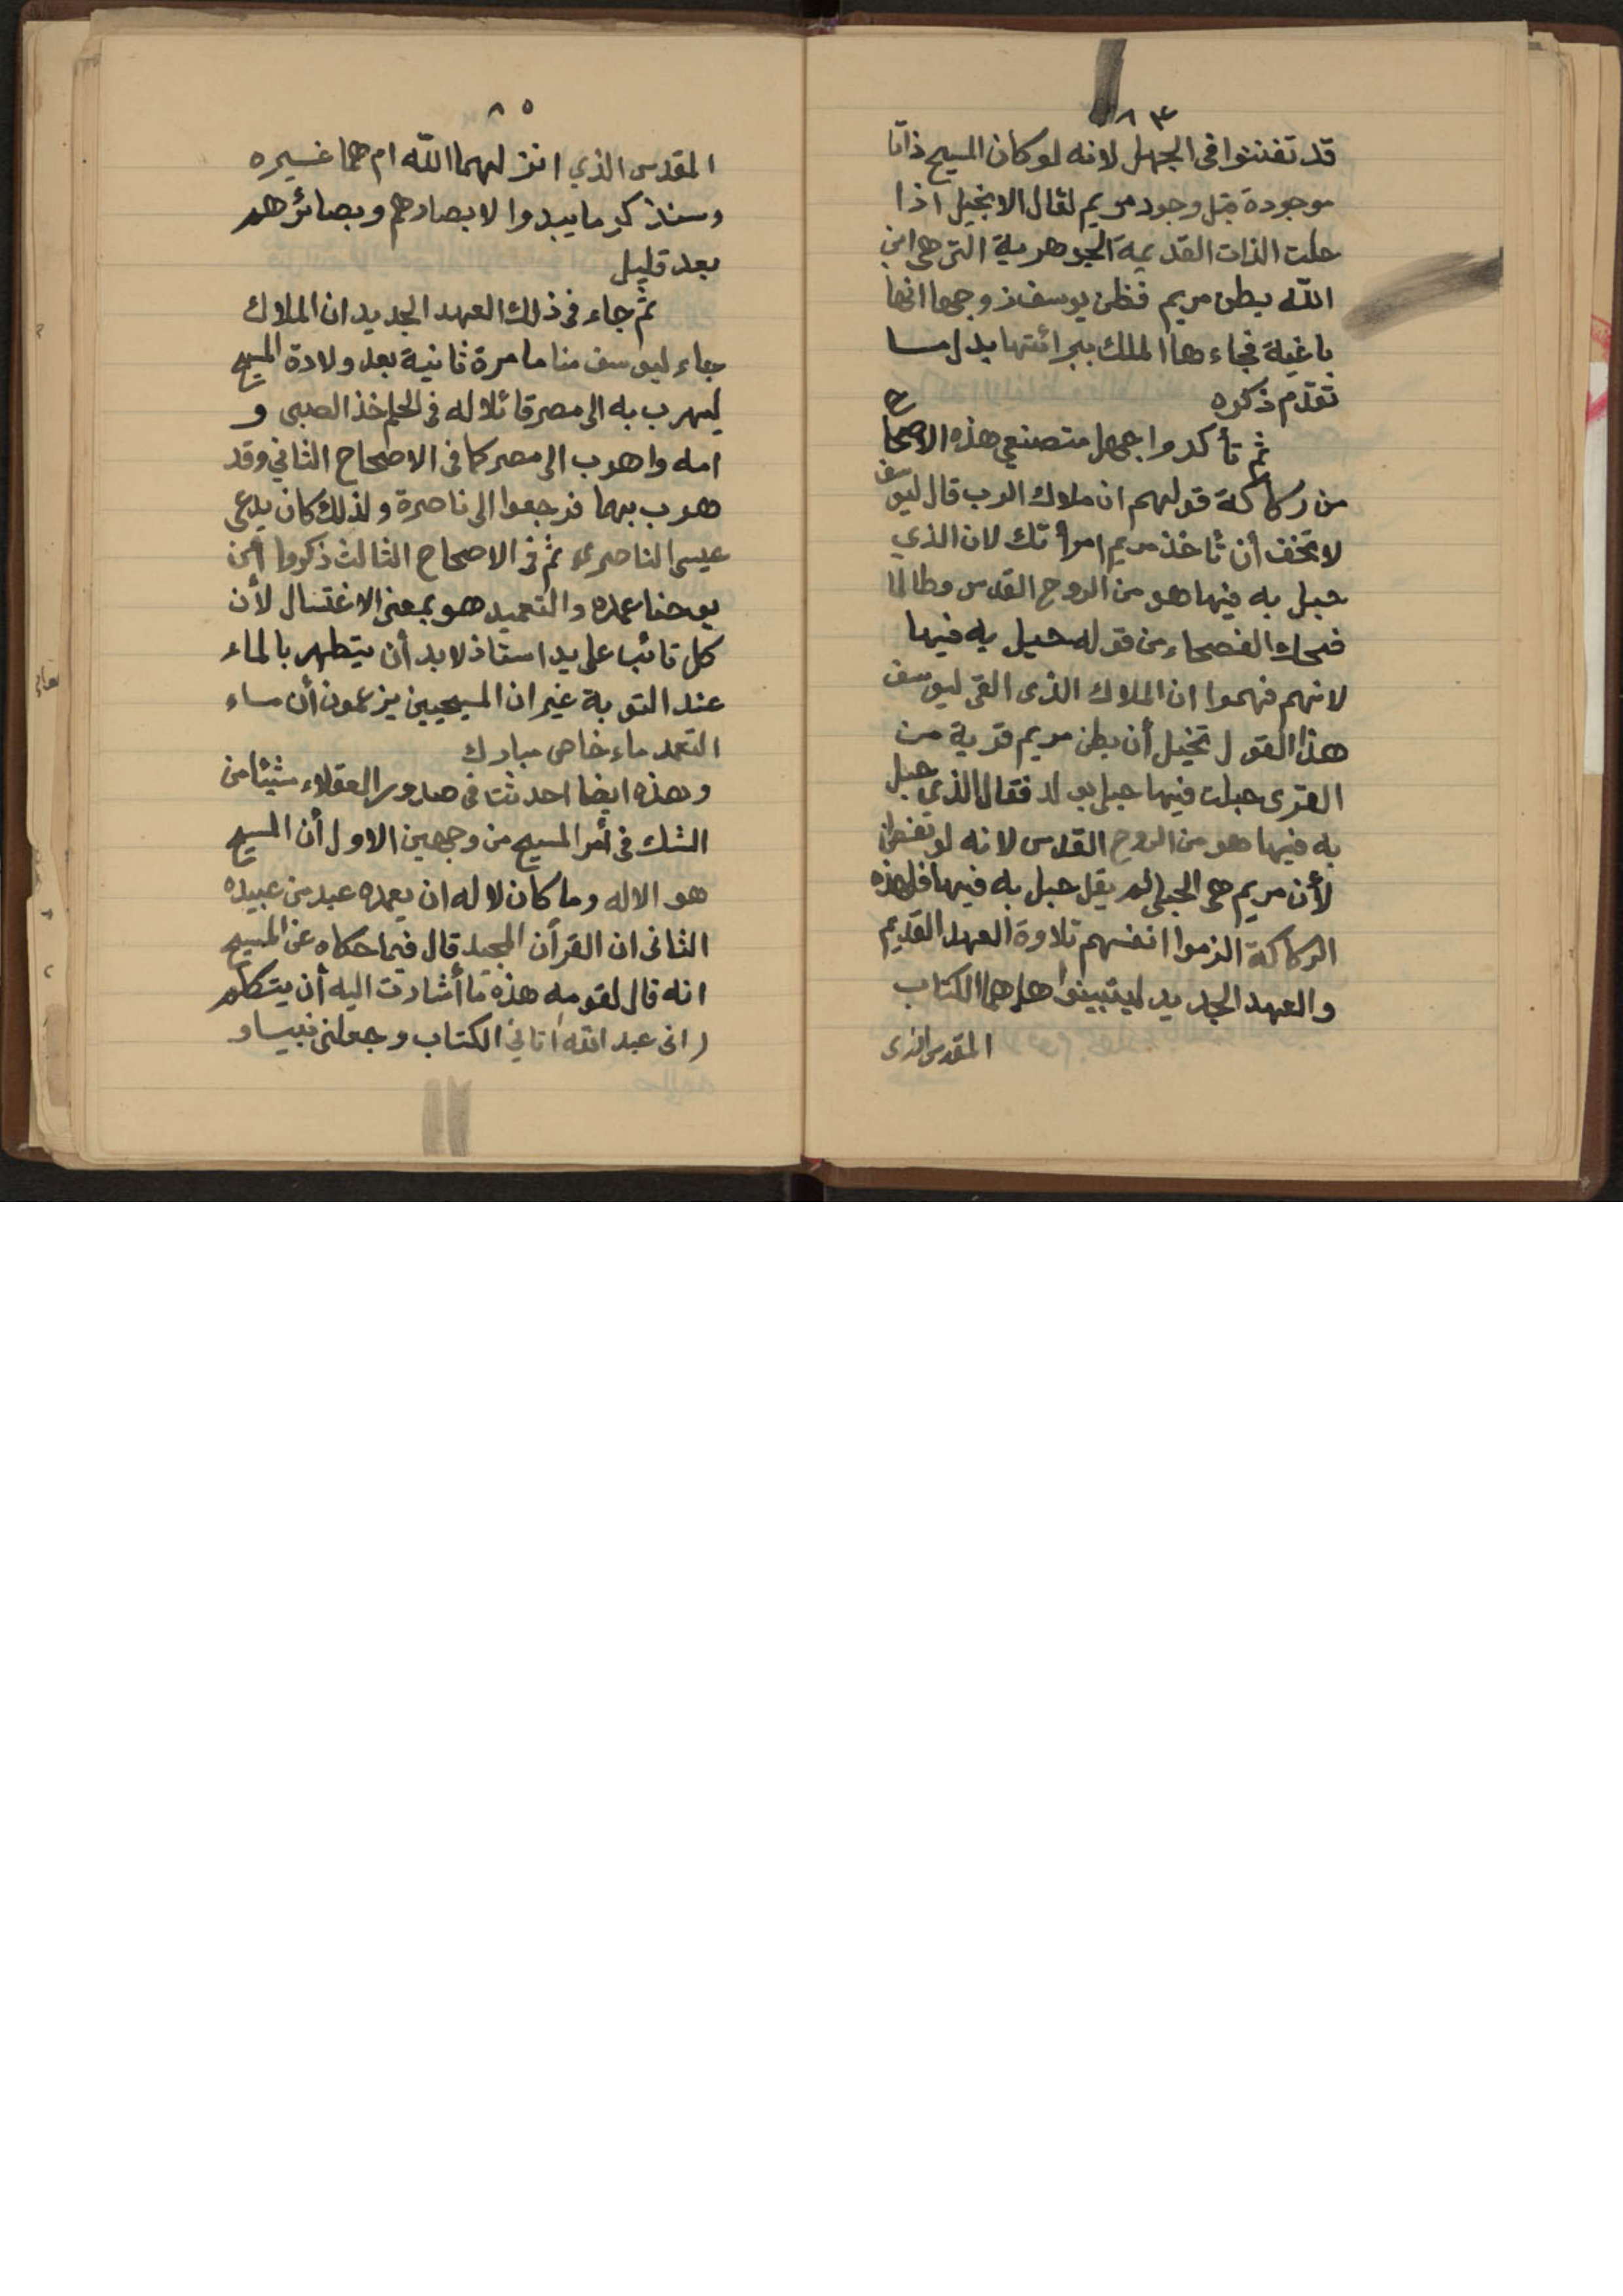 ٨٣
قد تفننوا فى الجهل لانه لو كان المسيح ذاتا
موجودة قبل وجود مريم لقال الانجيل اذا
حلت الذات القديمة الجوهرية التى هى ابن
الله بطن مريم فظن يوسف زوجها انها
باغية فجاءها الملك ببرائتها بدل مسا
تقدم ذكره
ثم تأكدوا جهل متصنعى هذه الاصحاح
من ركاكة قولهم ان ملاك الرب قال ليوسف
لا تخف أن تأخذ مريم امرأتك لان الذي
حبل به فيها هو من الروح القدس وطالما
ضحك الفصحاء من قوله حبل به فيها
لانهم فهموا ان الملاك الذى القى ليوسف
هذا القول تخيل أن بطن مريم قرية من
القرى حبلت فيها حبلى بولد فقال الذي حبل
به فيها هو من الروح القدس لانه لو تفطن
لأن مريم هى الحبلى لم يقل حبل به فيها فلهذه
الركاكة الزموا انفسهم تلاوة العهد القديم
والعهد الجديد ليتبينوا هل هما الكتاب
المقدس الذى
٨٥
المقدس الذي انزلهما الله ام هما غسيره
وسنذكر ما يبدوا لابصارهم وبصائرهم
بعد قليل
ثم جاء فى ذلك العهد الجديد ان الملاك
جاء ليوسف مناما مرة ثانية بعد ولادة المسيح
ليهرب به الى مصر قائلا له فى الحلم خذ الصبى و
امه واهرب الى مصر كما فى الاصحاح الثاني وقد
هرب بهما فرجعوا الى ناصرة ولذلك كان يدعى
عيسى الناصرى ثم فى الاصحاح الثالث ذكروا أن
يوحنا عمده والتعميد هو بمعنى الاغتسال لأن
كل تائب على يد استاذ لابد أن يتطهر بالماء
عند التوبة غير ان المسيحيين يزعمون أن مساء
التعمد ماء خاص مبارك
وهذه ايضا احدثت فى صدور العقلاء شيئا من
الشك فى أمر المسيح من وجهين الاول أن المسيح
هو الاله وما كان لاله ان يعمده عبد من عبيده
الثانى ان القرآن المجيد قال فيما حكاه عن المسيح
انه قال لقومه هذه ما أشارت اليه أن يتكلم
(انى عبد الله آتاني الكتاب وجعلنى نبيسا و